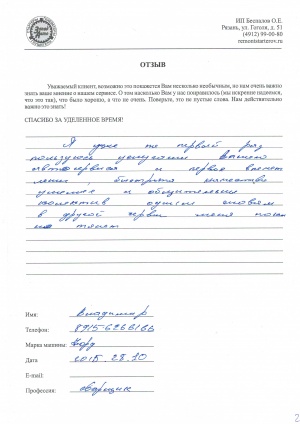 ИП Беспалов О.Е.
Рязань, ул. Гоголя, д. 51
(4912) 99-00-80
remontstarterov.ru
ОТЗЫВ
Уважаемый клиент, возможно это покажется Вам несколько необычным, но нам очень важно
знать ваше мнение о нашем сервисе. О том насколько Вам у нас понравилось (мы искренне надеемся,
что это так), что было хорошо, а что не очень. Поверьте, это не пустые слова. Нам действительно
важно это знать!
СПАСИБО ЗА УДЕЛЕННОЕ ВРЕМЯ!
Я уже не первый раз
пользуюсь услугами Вашего
автосервиса и первое впечат
ление, быстрота
и обходительные
коллектив одним словом
в другой сервис меня пока
не тянет
Имя: Владимир
Телефон: 8915-6266166
Марка машины: Форд
Дата 2015.28.10
E-mail:
Профессия: сварщик
2